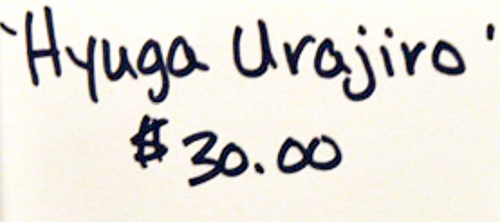 'Hyuga Urajiro'
$30.00